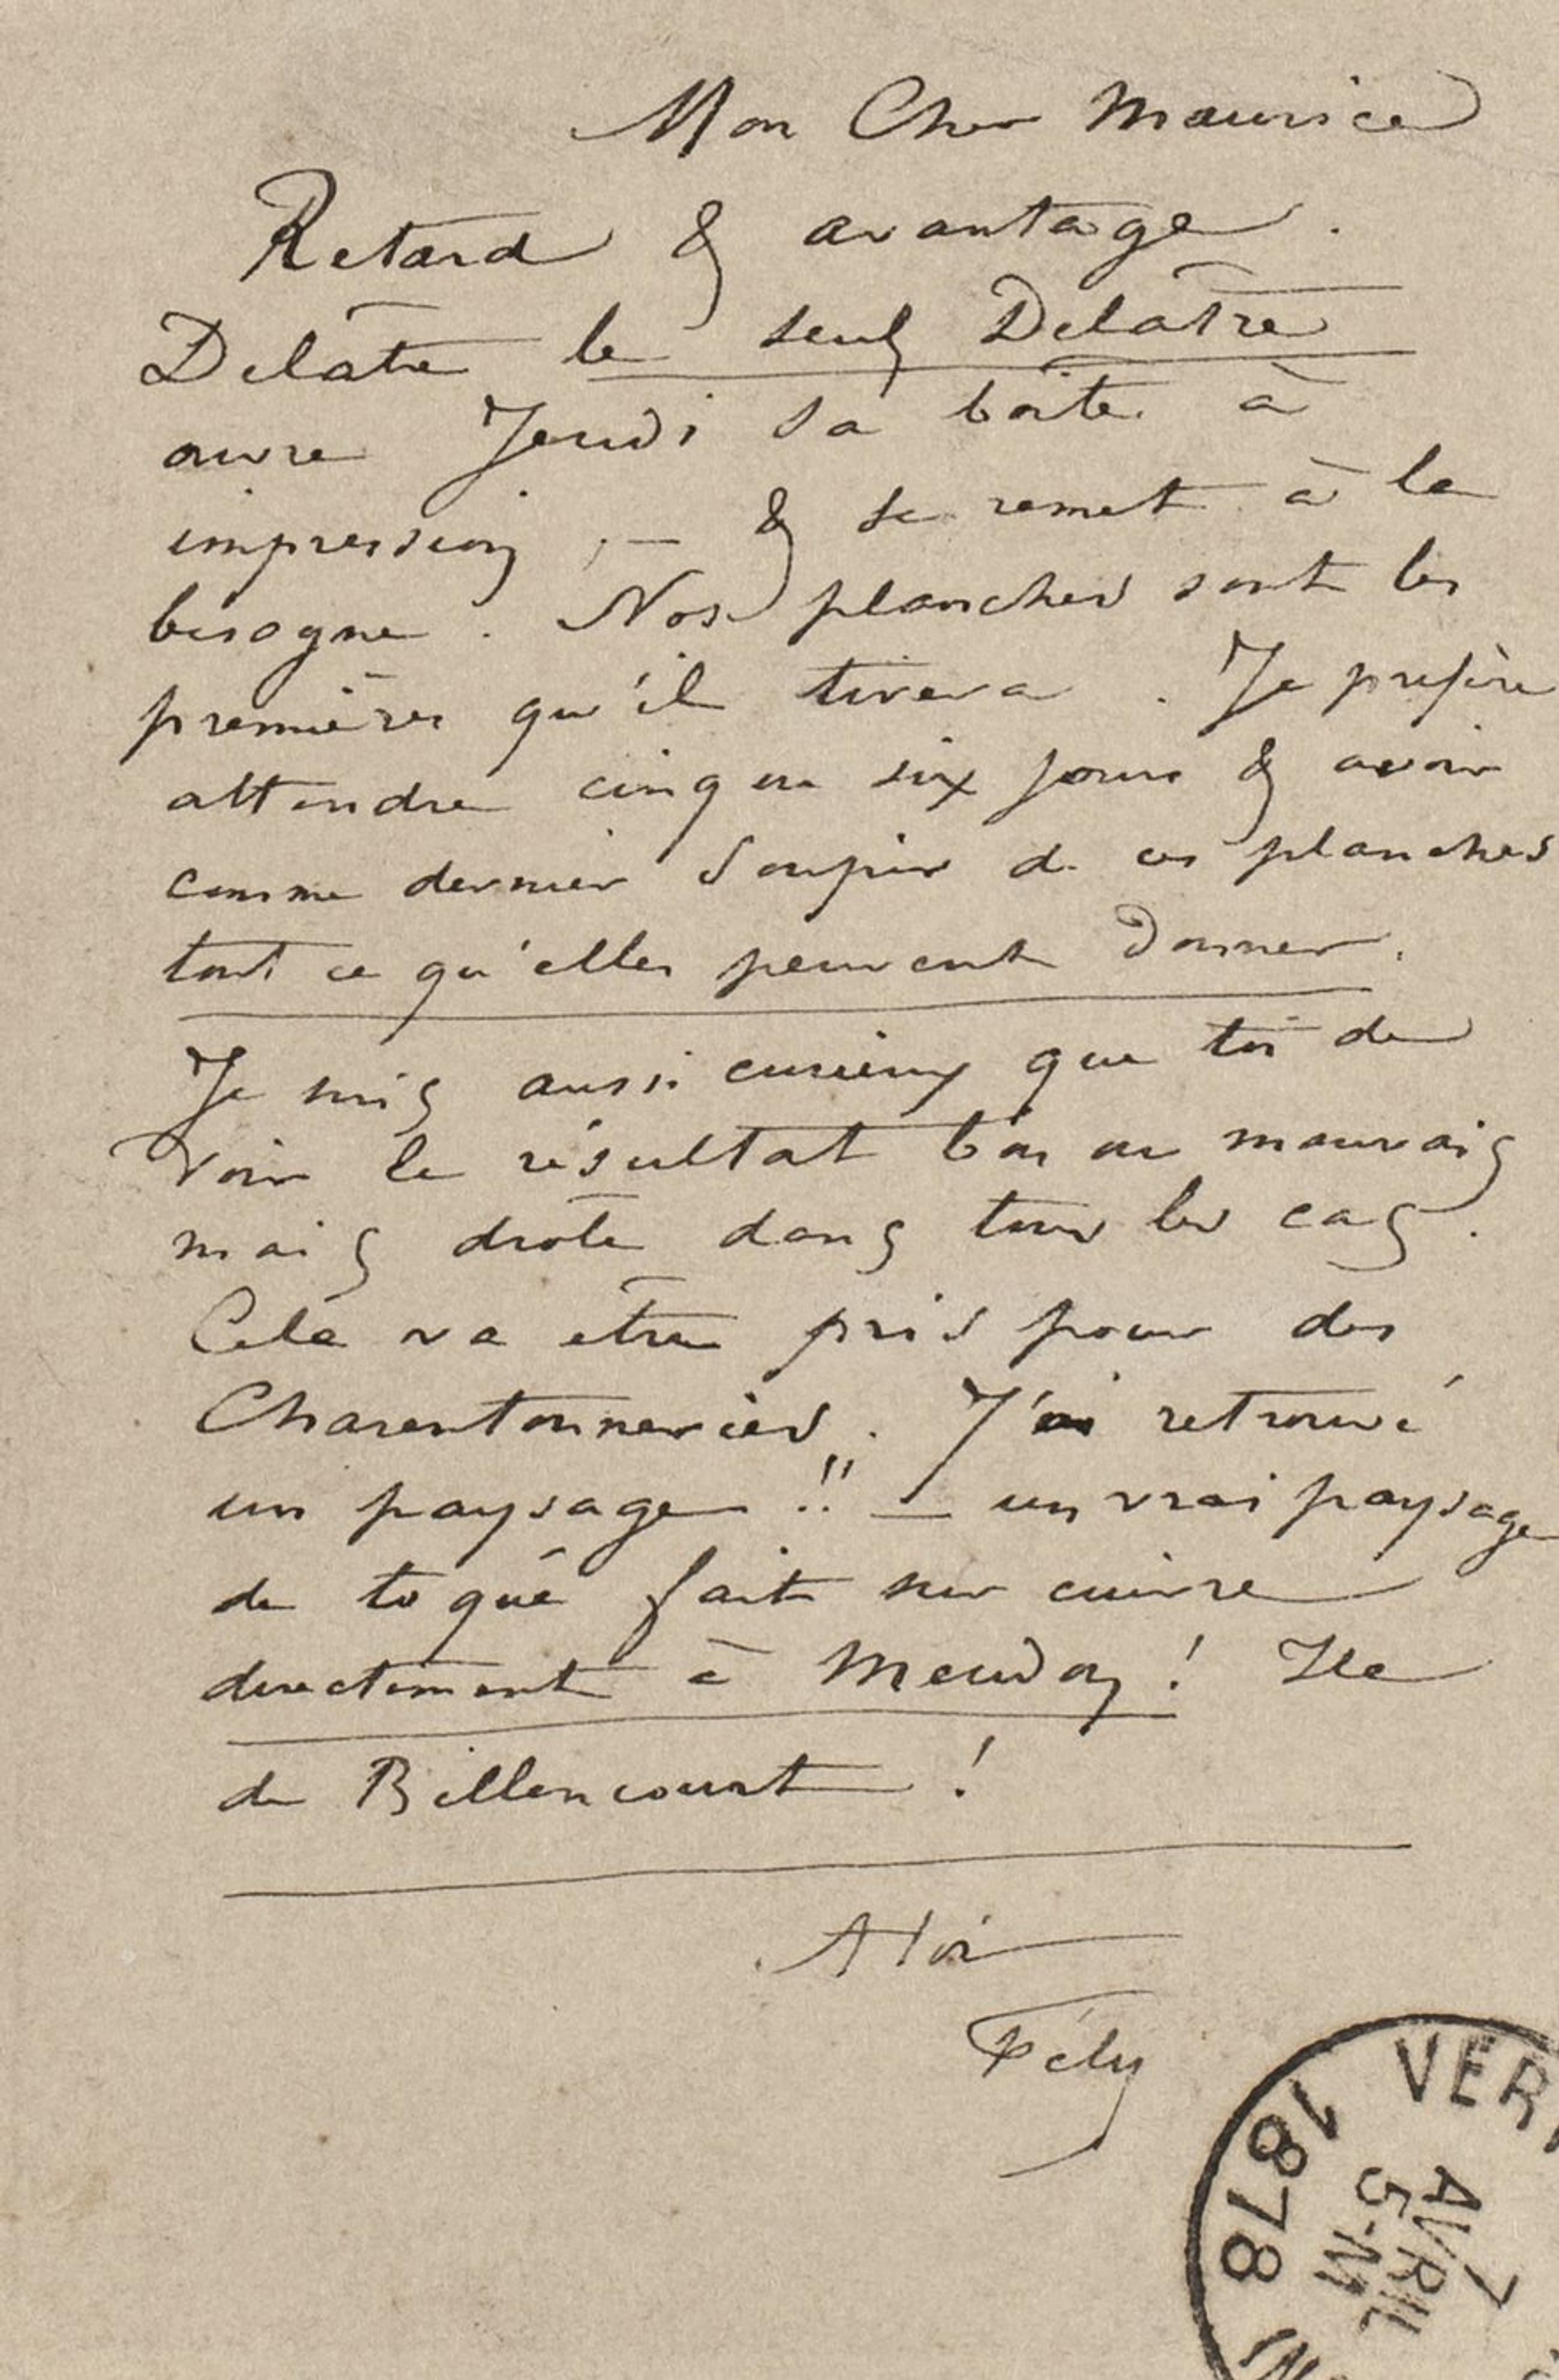 Mon Cher Maurice
Retard & avantage.
Delâtre le seul Delâtre
ouvre Jeudi sa boîte à
impression, — & se remet à la
besogne. Nos planches sont les
premières qu'il tirera. Je prefère
attendre cinq ou six jours & avoir
comme dernier soupir de ces planches
tout ce qu'elles peuvent donner.
Je suis aussi curieux que toi de
voir le résultat bon ou mauvais
mais drôle dans tous les cas.
Cela va être pris pour des
Charentonneries. J'ai retrouvé
un paysage !! — un vrai paysage
de toqué fait sur cuivre
directement à Meudon! Ile
de Billancourt!
A toi
Fély
VER
1878
7
AVRIL
5-M